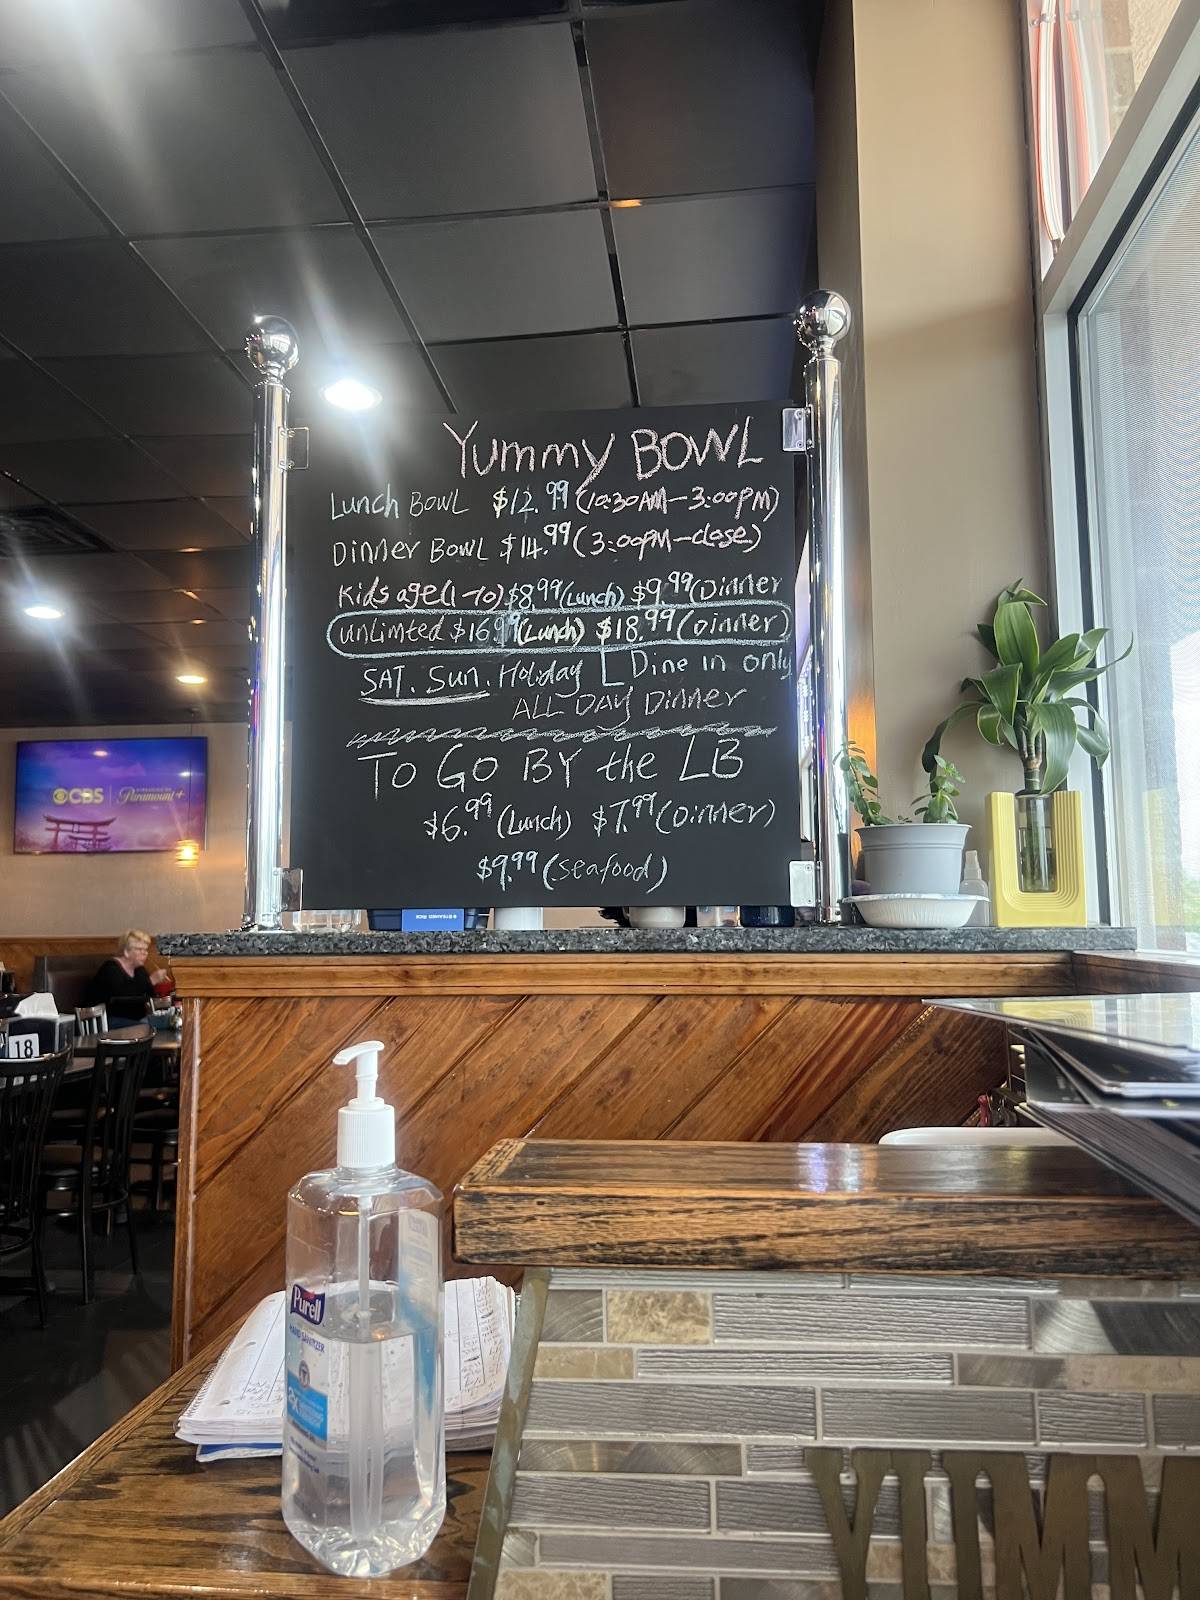 Yummy BOWL
Lunch BOWL $12.99 (10:30AM-3:00PM)
Dinner BowL $14.99 (3:00PM-close)
Kids age(1-10) $8.99 (Lunch) $9.99 (Dinner
unLimted $16.99 (Lunch) $18.99 (Dinner)
SAT. Sun. Holiday Dine in only
ALL DAY Dinner
TO GO BY the LB
$6.99 (Lunch) $7.99 (Dinner)
$9.99 (seafood)
CBS Paramount+
18
Purell
HAND SANITIZER
2X
YUMM